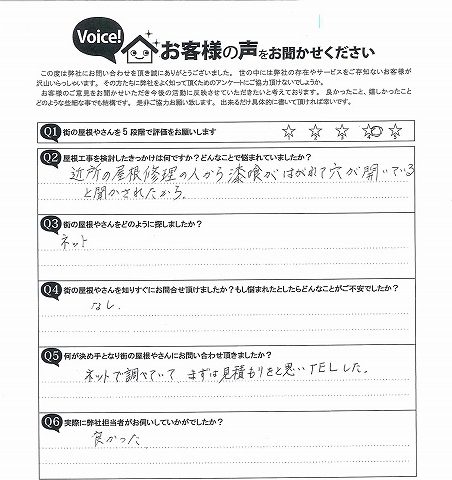 Voice!
お客様の声をお聞かせください
この度は弊社にお問い合わせを頂き誠にありがとうございました。世の中には弊社の存在やサービスをご存知ないお客様が
沢山いらっしゃいます。その方たちに弊社をよく知って頂くためのアンケートにご協力頂けないでしょうか。
お客様のご意見をお聞かせいただき今後の活動に反映させていただきたいと考えております。良かったこと、嬉しかったこと
どのような些細な事でも結構です。是非ご協力お願い致します。出来るだけ具体的に書いて頂ければ幸いです。
Q1 街の屋根やさんを5段階で評価をお願いします ☆ ☆ ☆ ☆ ☆
Q2 屋根工事を検討したきっかけは何ですか?どんなことで悩まれていましたか?
近所の屋根修理の人から漆喰がはがれて穴が開いている
と聞かされたから。
Q3 街の屋根やさんをどのように探しましたか?
ネット
Q4 街の屋根やさんを知りすぐにお問合せ頂けましたか?もし悩まれたとしたらどんなことがご不安でしたか?
なし.
Q5 何が決め手となり街の屋根やさんにお問い合わせ頂きましたか?
ネットで調べていて まずは見積もりをと思いTELした。
Q6 実際に弊社担当者がお伺いしていかがでしたか?
良かった